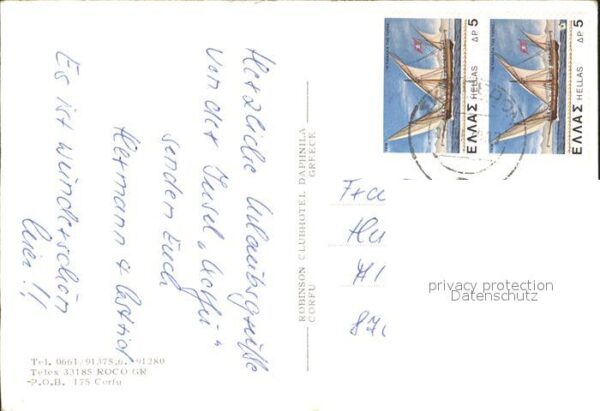 Herzliche Urlaubsgrüße
von der Insel „Corfu“
senden Euch
Hermann & Astrid
Es ist wunderschön
hier !!
ROBINSON CLUBHOTEL DAPHNILA
CORFU GREECE
Tel. 0661/91375,6. 91280
Telex 33185 ROCO GR
P.O.B. 175 Corfu
ΔΡ 5
ΕΛΛΑΣ HELLAS
ΔΡ 5
ΕΛΛΑΣ HELLAS
privacy protection
Datenschutz